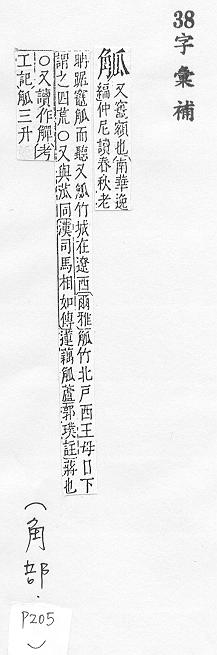 38字彙補
觚 又竈額也南華逸
編仲尼讀春秋老
聃踞竈觚而聽又觚竹城在遼西爾雅觚竹北戸西王母日下
謂之四荒○又與菰同漢司馬相如傳蓮藕觚蘆郭璞註蔣也
○又讀作觶考
工記觚三升
(角部.
P205
)